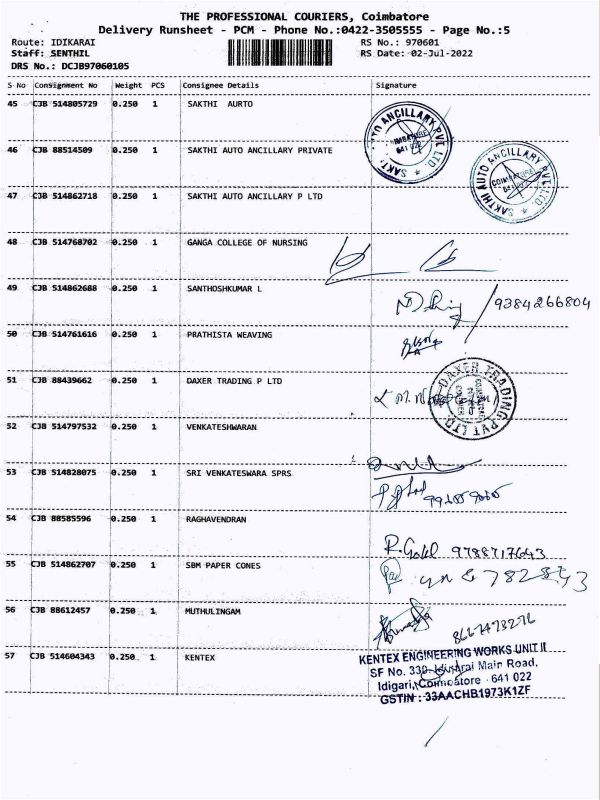 THE PROFESSIONAL COURIERS, Coimbatore
Delivery Runsheet - PCM - Phone No.:0422-3505555 - Page No.:5
Route: IDIKARAI RS No.: 970601
Staff: SENTHIL RS Date: 02-Jul-2022
DRS No.: DCJB97060105
S No Consignment No Weight PCS Consignee Details Signature
45 CJB 514805729 0.250 1 SAKTHI AURTO
46 CJB 88514509 0.250 1 SAKTHI AUTO ANCILLARY PRIVATE
SAKTHI AUTO ANCILLARY PVT LTD. COIMBATORE
47 CJB 514862718 0.250 1 SAKTHI AUTO ANCILLARY P LTD
48 CJB 514768702 0.250 1 GANGA COLLEGE OF NURSING
49 CJB 514862688 0.250 1 SANTHOSHKUMAR L
9384266804
50 CJB 514761616 0.250 1 PRATHISTA WEAVING
51 CJB 88439662 0.250 1 DAXER TRADING P LTD
DAXER TRADING PVT LTD.
52 CJB 514797532 0.250 1 VENKATESHWARAN
53 CJB 514828075 0.250 1 SRI VENKATESWARA SPRS
54 CJB 88585596 0.250 1 RAGHAVENDRAN
55 CJB 514862707 0.250 1 SBM PAPER CONES
56 CJB 88612457 0.250 1 MUTHULINGAM
57 CJB 514604343 0.250 1 KENTEX
KENTEX ENGINEERING WORKS UNIT II
SF No. Main Road,
Idigari, Coimbatore - 641 022
GSTIN : 33AACHB1973K1ZF